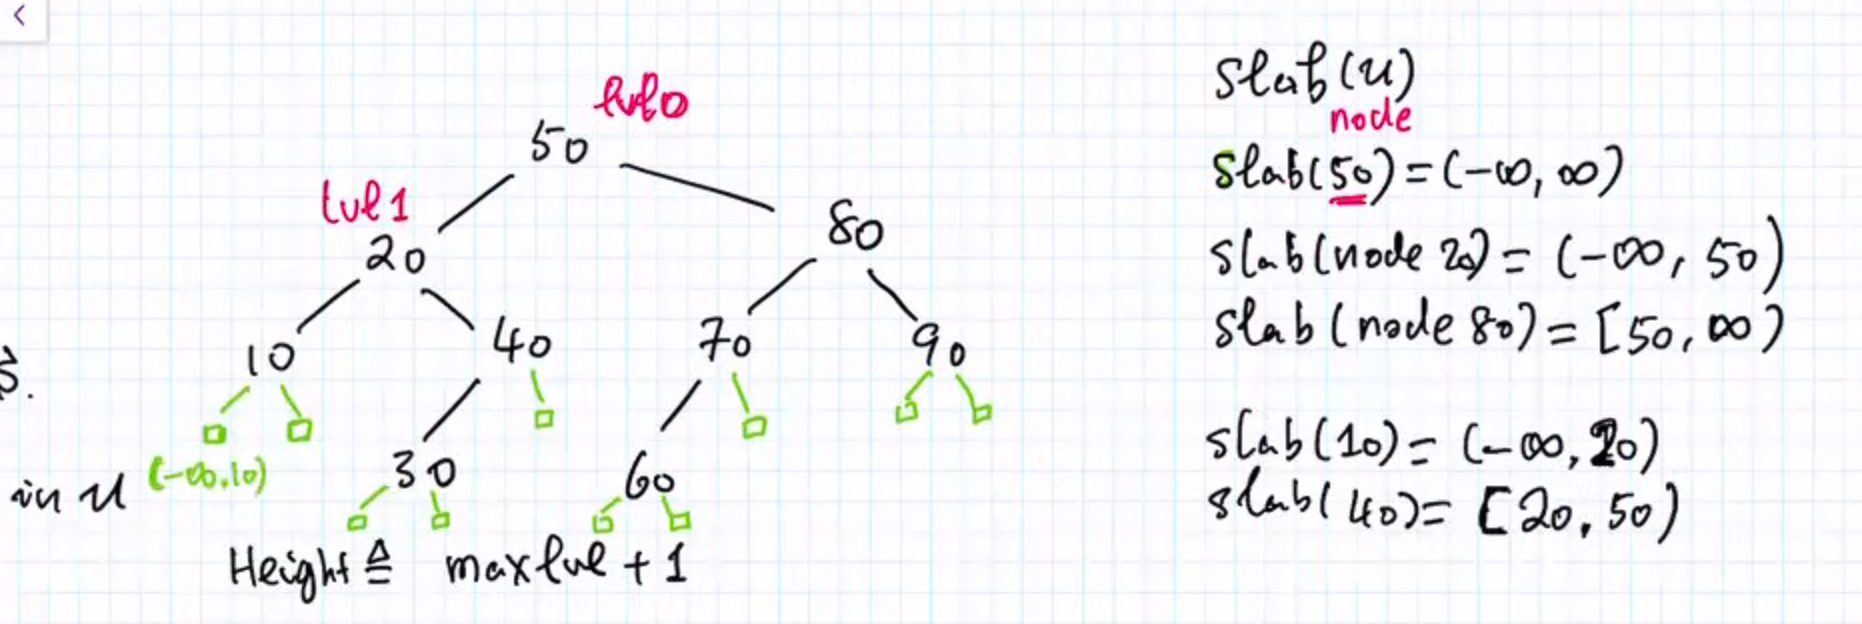 <
lvl0
50
lvl1
20
80
10
40
70
90
(-∞,10)
30
60
s.
in u
Height ≜ max lvl + 1
slab(u)
node
slab(50) = (-∞, ∞)
slab(node 20) = (-∞, 50)
slab(node 80) = [50, ∞)
slab(10) = (-∞, 20)
slab(40) = [20, 50)